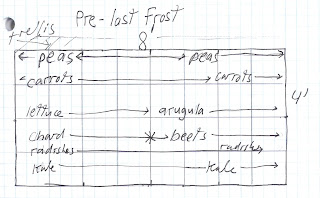 Pre-last Frost
trellis
8'
peas peas
carrots carrots
4'
lettuce arugula
chard beets
radishes radishes
Kale Kale